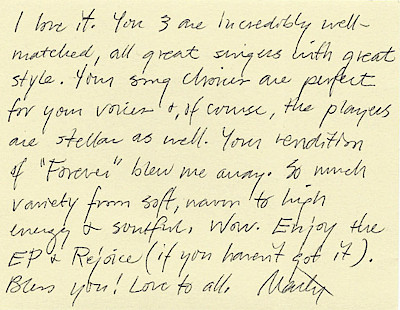 I love it. You 3 are incredibly well-
matched, all great singers with great
style. Your song choices are perfect
for your voices &, of course, the players
are stellar as well. Your rendition
of "Forever" blew me away. So much
variety from soft, warm to high
energy & soulful. Wow. Enjoy the
EP & Rejoice (if you haven't got it).
Bless you! Love to all.